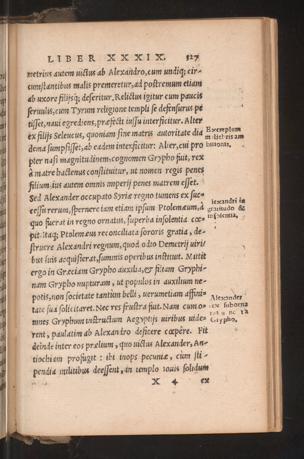 LIBER XXXIX. 327
metrius autem uictus ab Alexandro, cum undiq; cir-
cumstantibus malis premeretur, ad postremum etiam
ab uxore filijsq; deseritur, Relictus igitur cum paucis
seruulis, cum Tyrum religione templi se defensurus pe
tisset, naui egrediens, præfecti iussu interficitur. Alter
ex filijs Seleucus, quoniam sine matris autoritate dia
dema sumpsisset, ab eadem interficitur: Alter, cui pro
pter nasi magnitudinem, cognomen Grypho fuit, rex
à matre hactenus constituitur, ut nomen regis penes
filium, ius autem omnis imperij penes matrem esset.
Sed Alexander occupato Syriæ regno tumens ex suc
cessu rerum, spernere iam etiam ipsum Ptolemæum, à
quo fuerat in regno ornatus, superba insolentia cœ-
pit. Itaq; Ptolemæus reconciliata sororis gratia, de-
struere Alexandri regnum, quod odio Demetrij uiri
bus suis acquisierat, summis opibus instituit. Mittit
ergo in Græciam Grypho auxilia, et filiam Gryphi-
nam Grypho nupturam, ut populos in auxilium ne-
potis, non societate tantum belli, uerumetiam affini-
tate sua solicitaret. Nec res frustra fuit. Nam cum o-
mnes Gryphum instructum Aegyptijs uiribus uide-
rent, paulatim ab Alexandro deficere cœpêre. Fit
deinde inter eos prælium, quo uictus Alexander, An-
tiochiam profugit: ibi inops pecuniæ, cum sti-
pendia militibus deessent, in templo Iouis solidum
X 4 ex
Exemplum
muliebris am
bitionis.
Alexandri in
gratitudo &
insolentia.
Alexander
Grypho.